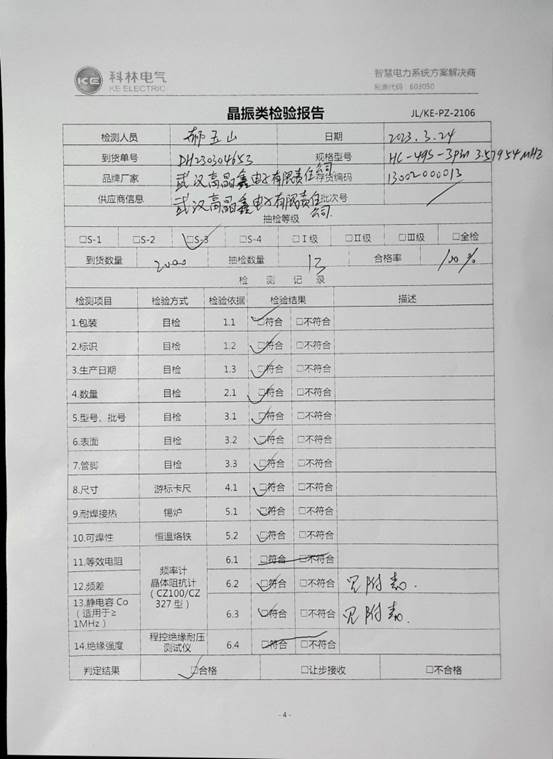 科林电气
KE ELECTRIC
智慧电力系统方案解决商
股票代码 603050
晶振类检验报告 JL/KE-PZ-2106
检测人员 郝玉山 日期 2023.3.24
到货单号 DH230304653 规格型号 HC-49S-3pin 3.57954MHz
品牌厂家 武汉高晶鑫电子有限责任公司 存货编码 13002000013
供应商信息 武汉高晶鑫电子有限责任公司 批次号
抽检等级
□S-1 □S-2 □S-3 □S-4 □Ⅰ级 □Ⅱ级 □Ⅲ级 □全检
到货数量 2000 抽检数量 13 合格率 100%
检 测 记 录
检测项目 检验方式 检验依据 检验结果 描述
1.包装 目检 1.1 □符合 □不符合
2.标识 目检 1.2 □符合 □不符合
3.生产日期 目检 1.3 □符合 □不符合
4.数量 目检 2.1 □符合 □不符合
5.型号、批号 目检 3.1 □符合 □不符合
6.表面 目检 3.2 □符合 □不符合
7.管脚 目检 3.3 □符合 □不符合
8.尺寸 游标卡尺 4.1 □符合 □不符合
9.耐焊接热 锡炉 5.1 □符合 □不符合
10.可焊性 恒温烙铁 5.2 □符合 □不符合
11.等效电阻 6.1 □符合 □不符合
频率计
晶体阻抗计
（CZ100/CZ
327 型）
12.频差 6.2 □符合 □不符合 见附表.
13.静电容 Co
（适用于≥
1MHz） 6.3 □符合 □不符合 见附表.
14.绝缘强度 程控绝缘耐压
测试仪 6.4 □符合 □不符合
判定结果 □合格 □让步接收 □不合格
- 4 -